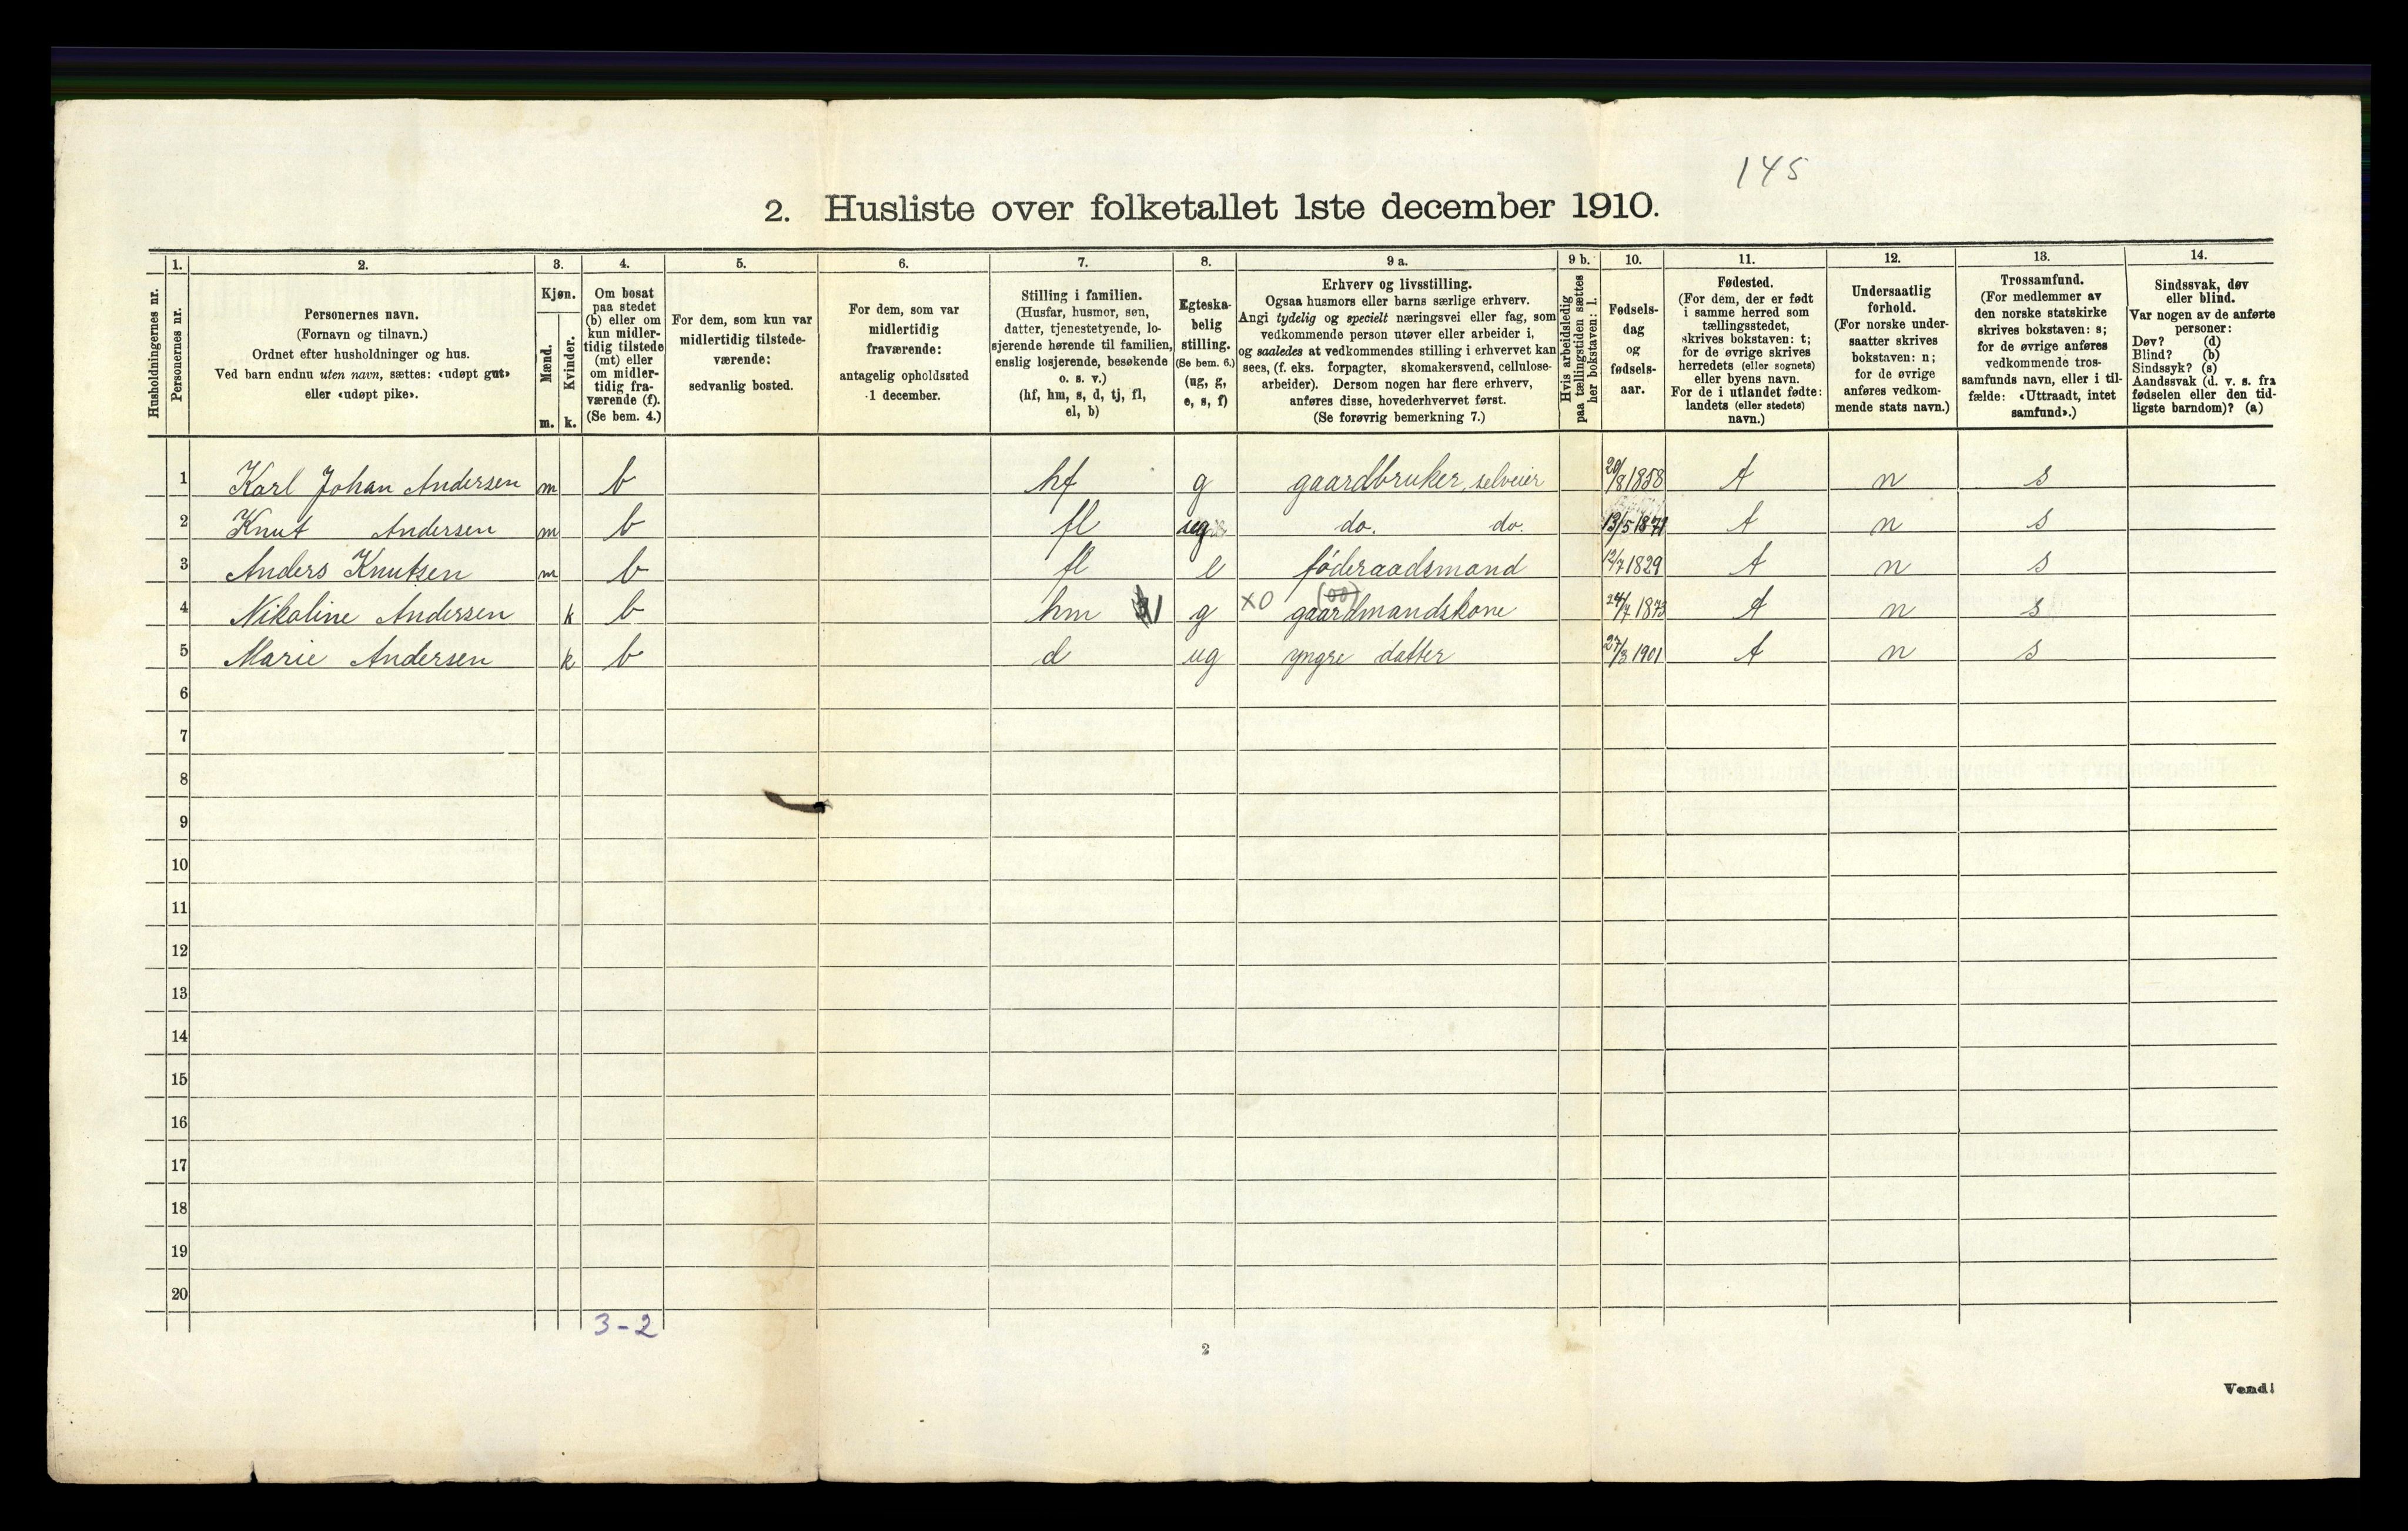 145
2. Husliste over folketallet 1ste december 1910.
Husholdningernes nr.
1.
Personernes nr.
2.
Personernes navn.
(Fornavn og tilnavn.)
Ordnet efter husholdninger og hus.
Ved barn endnu uten navn, sættes: «udøpt gut»
eller «udøpt pike».
3.
Kjøn.
Mænd.
Kvinder.
m. k.
4.
Om bosat
paa stedet
(b) eller om
kun midler-
tidig tilstede
(mt) eller
om midler-
tidig fra-
værende (f).
(Se bem. 4.)
5.
For dem, som kun var
midlertidig tilstede-
værende:
sedvanlig bosted.
6.
For dem, som var
midlertidig
fraværende:
antagelig opholdssted
1 december.
7.
Stilling i familien.
(Husfar, husmor, søn,
datter, tjenestetyende, lo-
sjerende hørende til familien,
enslig losjerende, besøkende
o. s. v.)
(hf, hm, s, d, tj, fl,
el, b)
8.
Egteska-
belig
stilling.
(Se bem. 6.)
(ug, g,
e, s, f)
9 a.
Erhverv og livsstilling.
Ogsaa husmors eller barns særlige erhverv.
Angi tydelig og specielt næringsvei eller fag, som
vedkommende person utøver eller arbeider i,
og saaledes at vedkommendes stilling i erhvervet kan
sees, (f. eks. forpagter, skomakersvend, cellulose-
arbeider). Dersom nogen har flere erhverv,
anføres disse, hovederhvervet først.
(Se forøvrig bemerkning 7.)
9 b.
Hvis arbeidsledig
paa tællingstiden sættes
her bokstaven: l.
10.
Fødsels-
dag
og
fødsels-
aar.
11.
Fødested.
(For dem, der er født
i samme herred som
tællingsstedet,
skrives bokstaven: t;
for de øvrige skrives
herredets (eller sognets)
eller byens navn.
For de i utlandet fødte:
landets (eller stedets)
navn.)
12.
Undersaatlig
forhold.
(For norske under-
saatter skrives
bokstaven: n;
for de øvrige
anføres vedkom-
mende stats navn.)
13.
Trossamfund.
(For medlemmer av
den norske statskirke
skrives bokstaven: s;
for de øvrige anføres
vedkommende tros-
samfunds navn, eller i til-
fælde: «Uttraadt, intet
samfund».)
14.
Sindssvak, døv
eller blind.
Var nogen av de anførte
personer:
Døv? (d)
Blind? (b)
Sindssyk? (s)
Aandssvak (d. v. s. fra
fødselen eller den tid-
ligste barndom)? (a)
1 Karl Johan Andersen m b hf g gaardbruker, selveier 20/8 1858 t n s
2 Knut Andersen m b fl ug do. do. 13/5 1871 t n s
3 Anders Knutsen m b fl e føderaadsmand 12/7 1829 t n s
4 Nikoline Andersen k b hm 1 g XO gaardmandskone 24/7 1873 t n s
5 Marie Andersen k b d ug yngre datter 27/3 1901 t n s
6
7
8
9
10
11
12
13
14
15
16
17
18
19
20
3-2
2
Vend!